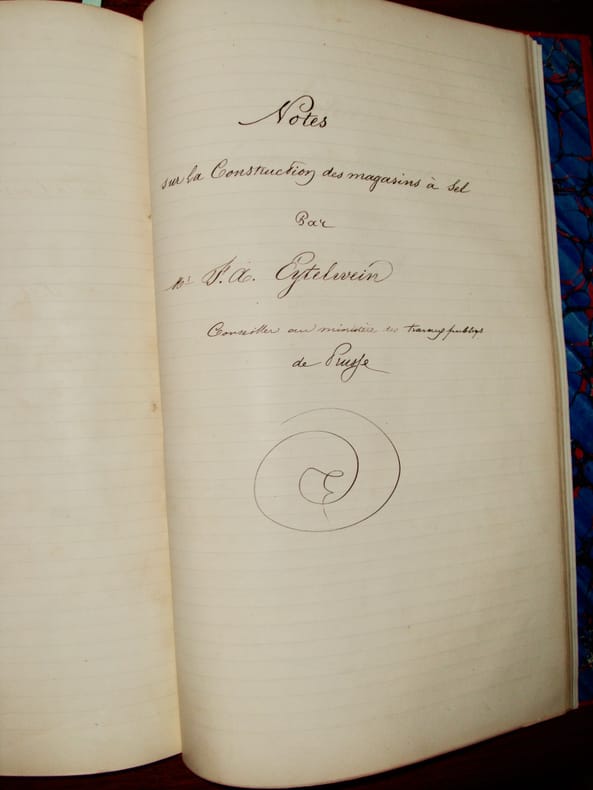 Notes
sur la Construction des magasins à Sel
Par
Mr F. A. Eytelwein
Conseiller au ministère des travaux publics
de Prusse